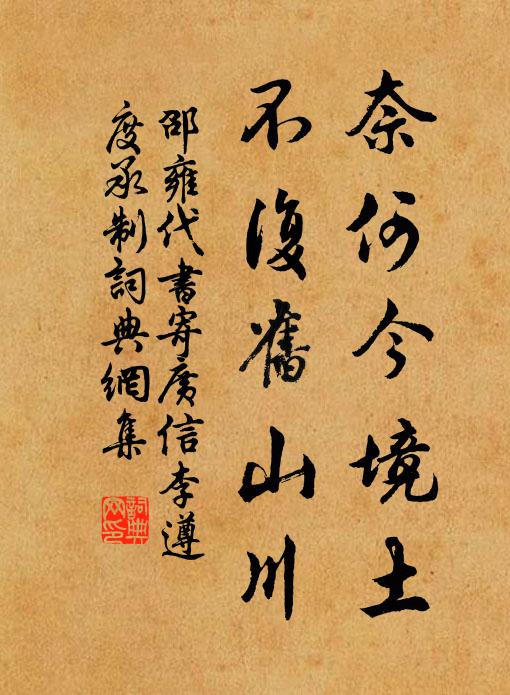 奈何今境土
不復舊山川
邵雍代書寄廣信李遵
度承制詞典網集
詞典網印